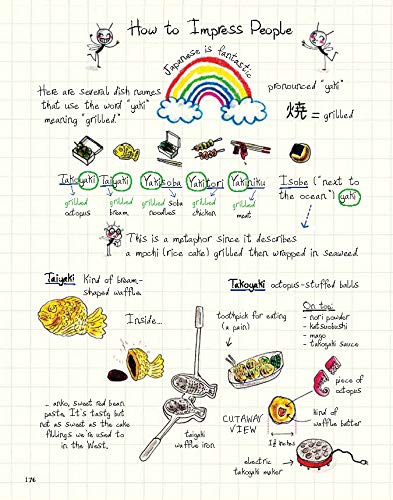 How to Impress People
Japanese is fantastic
Here are several dish names
that use the word "yaki"
meaning "grilled"
pronounced "yaki"
焼 = grilled
Takoyaki Taiyaki Yakisoba Yakitori Yakiniku
grilled octopus
grilled bream
grilled soba noodles
grilled chicken
grilled meat
Isobe ("next to
the ocean") yaki
This is a metaphor since it describes
a mochi (rice cake) grilled then wrapped in seaweed
Taiyaki Kind of bream-
shaped waffle
Inside...
... anko, sweet red bean
paste. It's tasty but
not as sweet as the cake
fillings we're used to
in the West.
taiyaki
waffle iron
Takoyaki octopus-stuffed balls
toothpick for eating
(a pain)
On top:
- nori powder
- katsuobushi
- mayo
- takoyaki sauce
piece of
octopus
CUTAWAY
VIEW
kind of
waffle batter
inches
electric
takoyaki maker
176